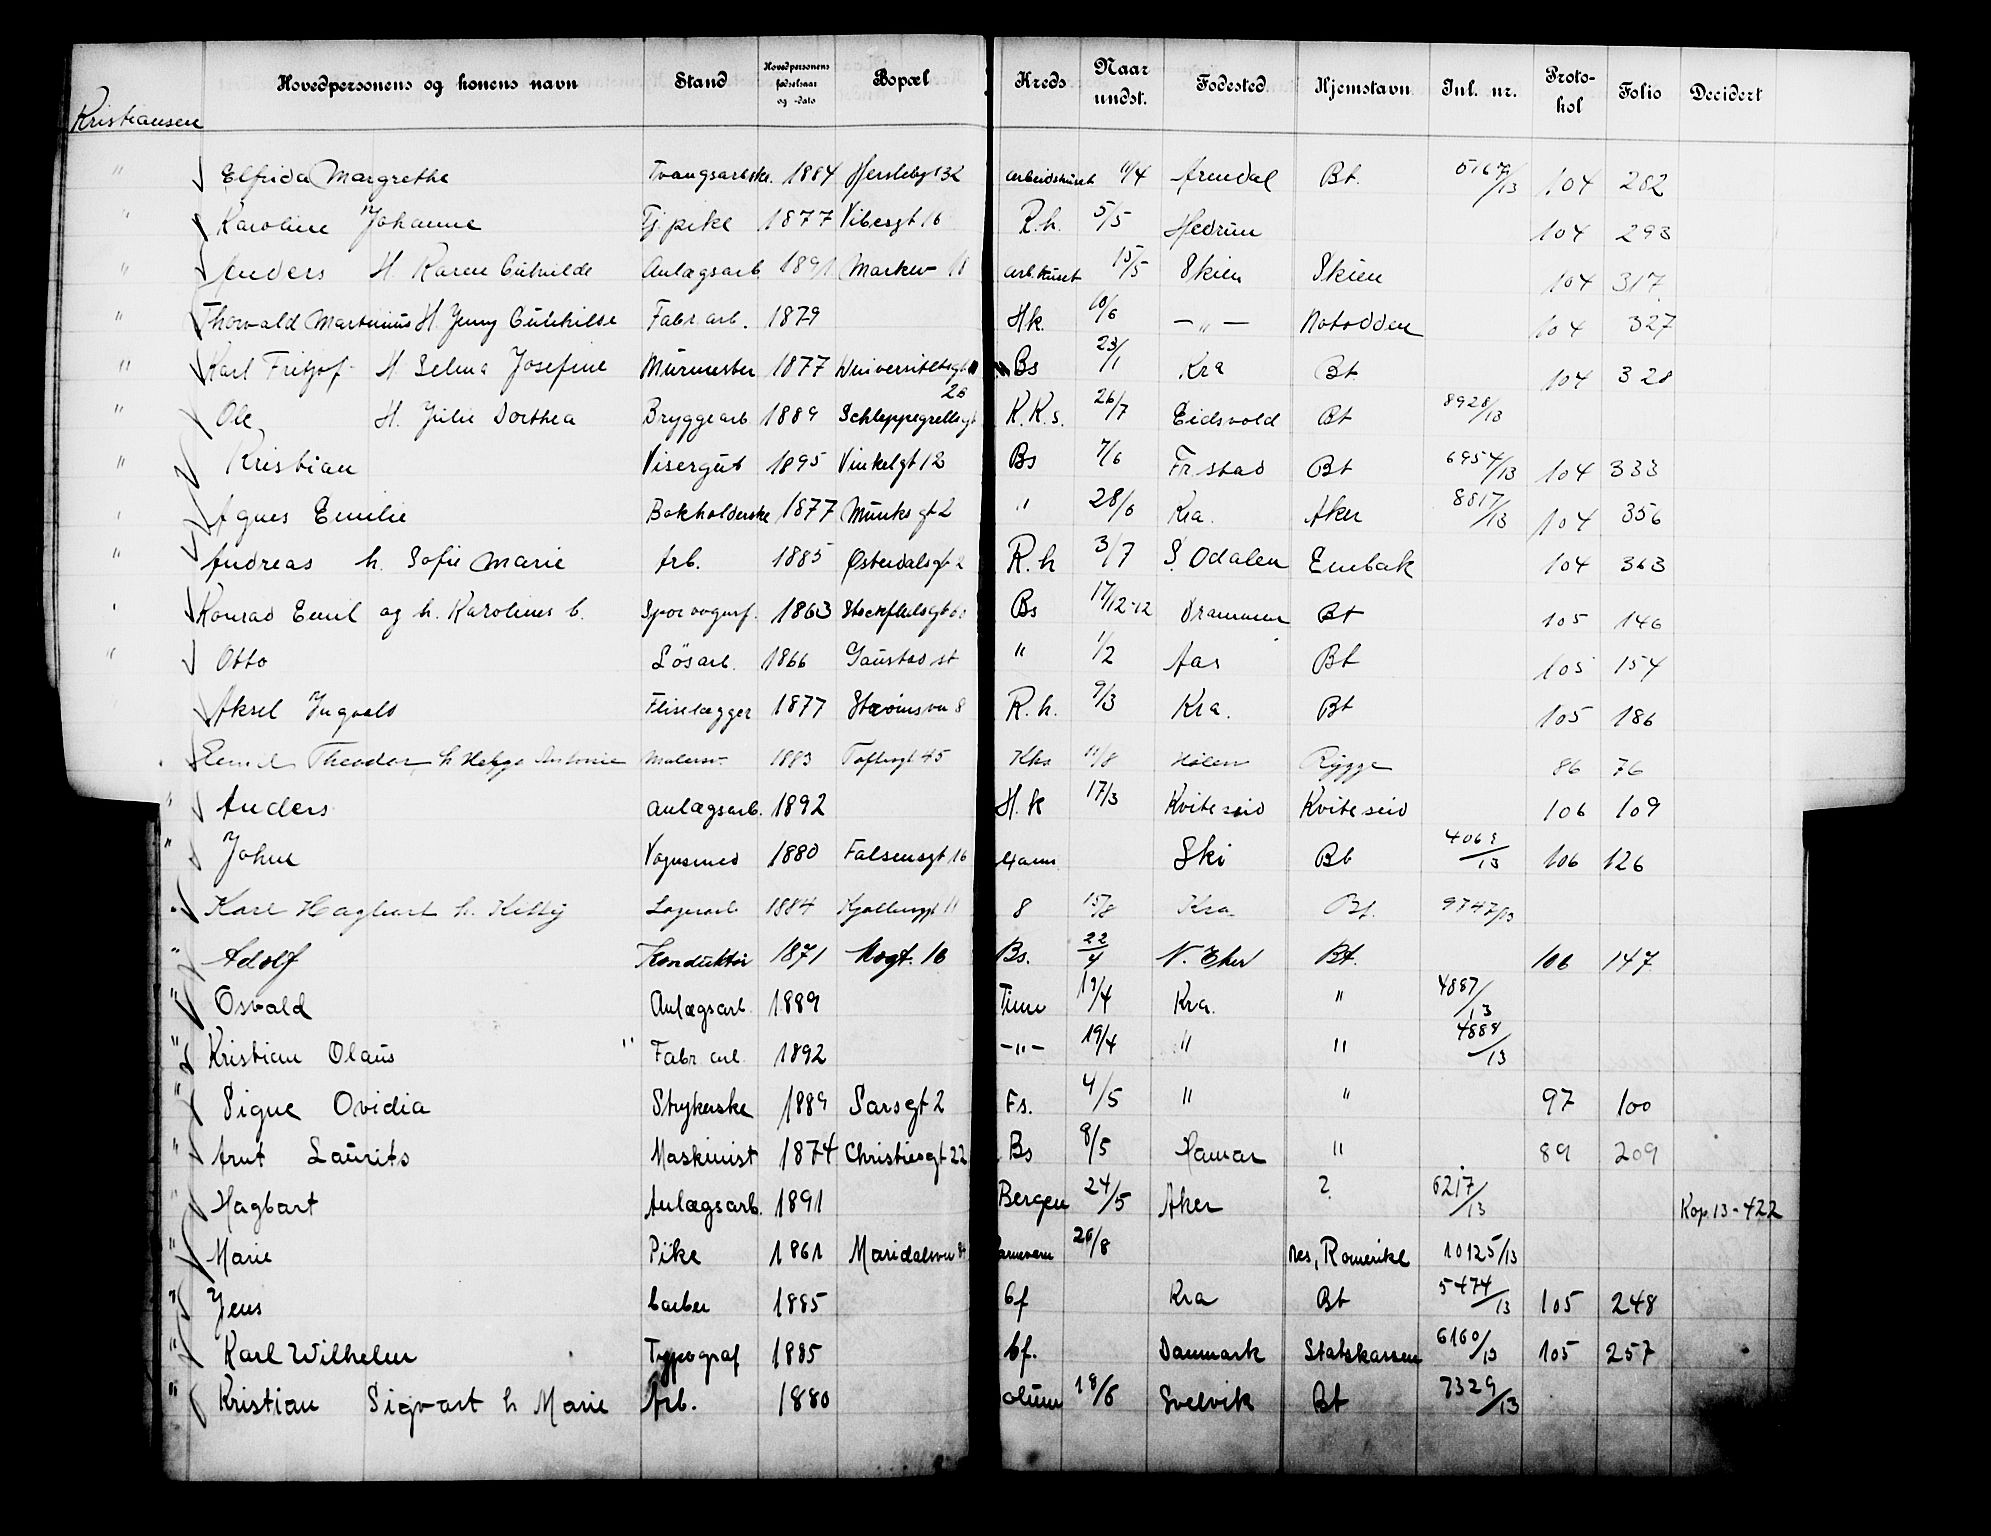 Hovedpersonens og konens navn Stand Hovedpersonens fødselsaar og -dato Bopæl Kreds Naar undst. Fødested Hjemstavn Inl. nr. Protokol Folio Decidert
Kristiansen
" Elfrida Margrethe Tvangsarbske. 1884 Herslebgt 32 arbeidshuset 11/4 Arendal Bt. 5167/13 104 282
" Karoline Johanne Tj.pike 1877 Vibesgt 16 R.h. 5/5 Hedrum 104 293
" Anders H. Karen Gunhilde Anlægsarb. 1891 Markv 18 arb.huset 15/5 Skien Skien 104 317
" Thorvald Martinius H. Jenny Gunhilde Fabr.arb. 1879 Hk. 10/6 —"— Notodden 104 327
" Karl Fritjof H Selma Josefine Murmester 1877 Universitetsgt 20 Bs 23/1 Kra Bt. 104 328
" Ole H. Julie Dorthea Bryggearb 1889 Schleppegrellsgt K.K.s. 26/7 Eidsvold Bt 8928/13
" Kristian Visergut 1895 Vinkelgt 12 Bs 7/6 Fr.stad Bt 6954/13 104 333
" Agnes Emilie Bokholderske 1877 Munks gt 2 " 28/6 Kra. Aker 8817/13 104 356
" Andreas h. Sofie Marie Arb. 1885 Østerdalsgt 2 R.h 3/7 S. Odalen Enebak 104 363
" Konrad Emil og h. Karolines b. Sporvognsf. 1863 Bs 17/12-12 Drammen Bt 105 146
" Otto Løsarb. 1866 Gaustad st " 1/2 Aas Bt 105 154
Aksel Ingvald Fliselægger 1877 8 R.h. 9/3 Kra. Bt 105 186
Emil Theodor, h Helga Antonie Malersv. 1883 Toftesgt 45 Kks 11/8 Hølen Rygge 86 76
" Anders Anlægsarb. 1892 H.k 17/3 Kviteseid Kviteseid 106 109
" John Vognsmed 1880 Falsensgt 16 Ski Bt 4069/13 106 126
" Karl Hagbart h. Kitty Lagerarb 1884 11 8 15/8 Kra Bt. 9747/13
" Adolf Konduktør 1871 Mogt. 16 Bs. 22/4 N. Eker Bt. 106 147
" Osvald Anlægsarb. 1889 Tinn 19/4 Kra. " 4887/13
" Kristian Olaus " Fabr. arb. 1892 —"— 19/4 " " 4888/13
" Signe Ovidia Strykerske 1889 Sarsgt 2 Fs. 4/5 " " 97 100
" Arnt Laurits Maskinist 1874 Christiesgt 22 Bs 8/5 Hamar " 89 209
" Hagbart Anlægsarb. 1891 Bergen 24/5 Aker ? 6217/13 Kop. 13-422
" Marie Pike 1861 Maridalsvn 26/8 Nes, Romerike 10125/13
" Jens barber 1885 bf Kra Bt 5474/13 105 248
" Karl Wilhelm Typograf 1885 bf. Danmark Statskassen 6160/13 105 257
" Kristian Sigvart h Marie Arb. 1880 18/6 Svelvik Bt 7329/13